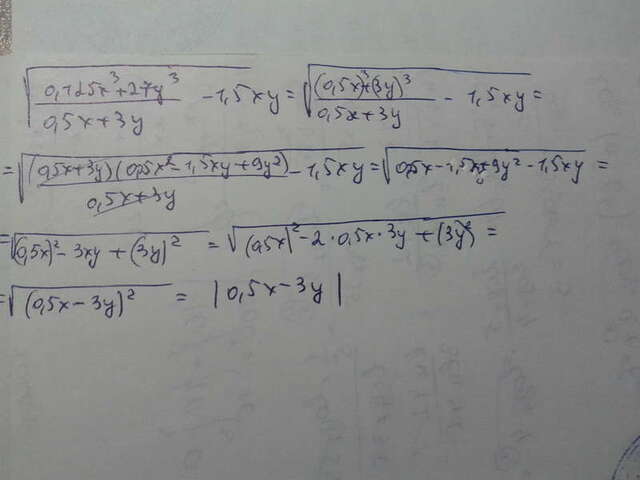 √((0,125x³+27y³)/(0,5x+3y) - 1,5xy) = √(((0,5x)³+(3y)³)/(0,5x+3y) - 1,5xy) =
= √((0,5x+3y)(0,25x²-1,5xy+9y²)/(0,5x+3y) - 1,5xy) = √(0,25x-1,5xy+9y² - 1,5xy) =
= √((0,5x)² - 3xy + (3y)²) = √((0,5x)² - 2·0,5x·3y + (3y)²) =
= √((0,5x-3y)²) = |0,5x-3y|